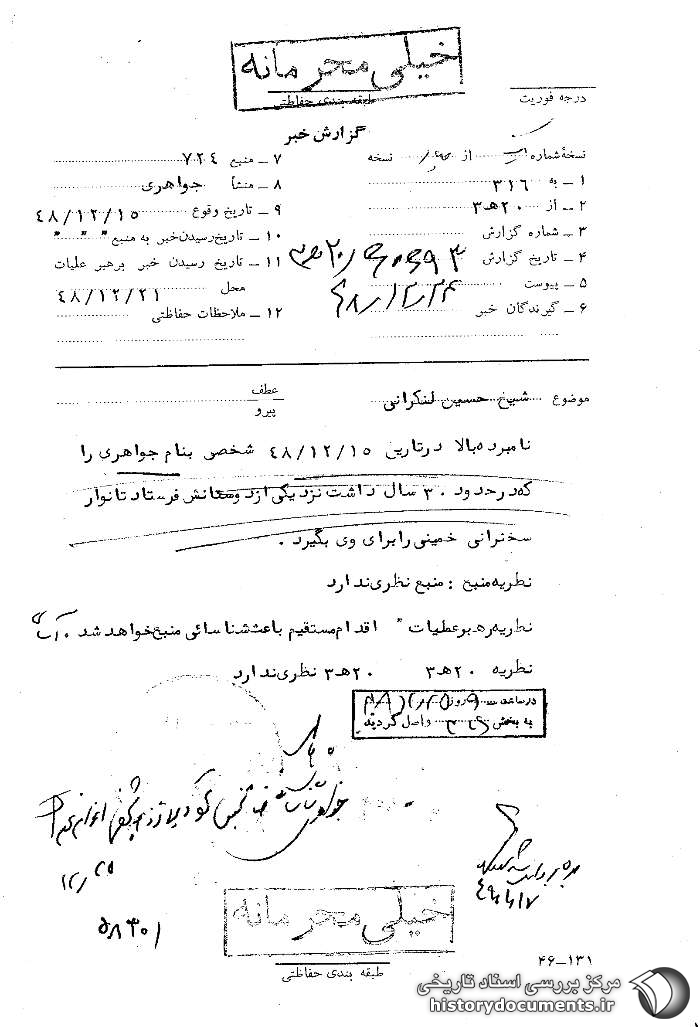 خیلی محرمانه
طبقه بندی حفاظتی
درجه فوریت
گزارش خبر
نسخهٔ شماره از نسخه
۱ ــ به ۳۱۶
۲ ــ از ۲۰هـ۳
۳ ــ شماره گزارش
۴ ــ تاریخ گزارش
۵ ــ پیوست
۶ ــ گیرندگان خبر
۷ ــ منبع ۷۲۴
۸ ــ منشأ جواهری
۹ ــ تاریخ وقوع ۴۸/۱۲/۱۵
۱۰ ــ تاریخ رسیدن خبر به منبع " " "
۱۱ ــ تاریخ رسیدن خبر برهبر عملیات
محل ۴۸/۱۲/۲۱
۱۲ ــ ملاحظات حفاظتی
موضوع شیخ حسین لنکرانی
عطف
پیرو
نامبرده بالا در تاریخ ۴۸/۱۲/۱۵ شخصی بنام جواهری را
که در حدود ۳۰ سال داشت نزد یکی از دوستانش فرستاد تا نوار
سخنرانی خمینی را برای وی بگیرد .
نظریه منبع : منبع نظری ندارد
نظریه رهبر عملیات " اقدام مستقیم باعث شناسائی منبع خواهد شد .
نظریه ۲۰هـ۳ ۲۰هـ۳ نظری ندارد
در ساعت روز
به بخش ۳۱۶ واصل گردید
۱۲/۲۵
۵۸۳۰۱
خیلی محرمانه
طبقه بندی حفاظتی
۴۶ــ۱۳۱
مرکز بررسی اسناد تاریخی
historydocuments.ir